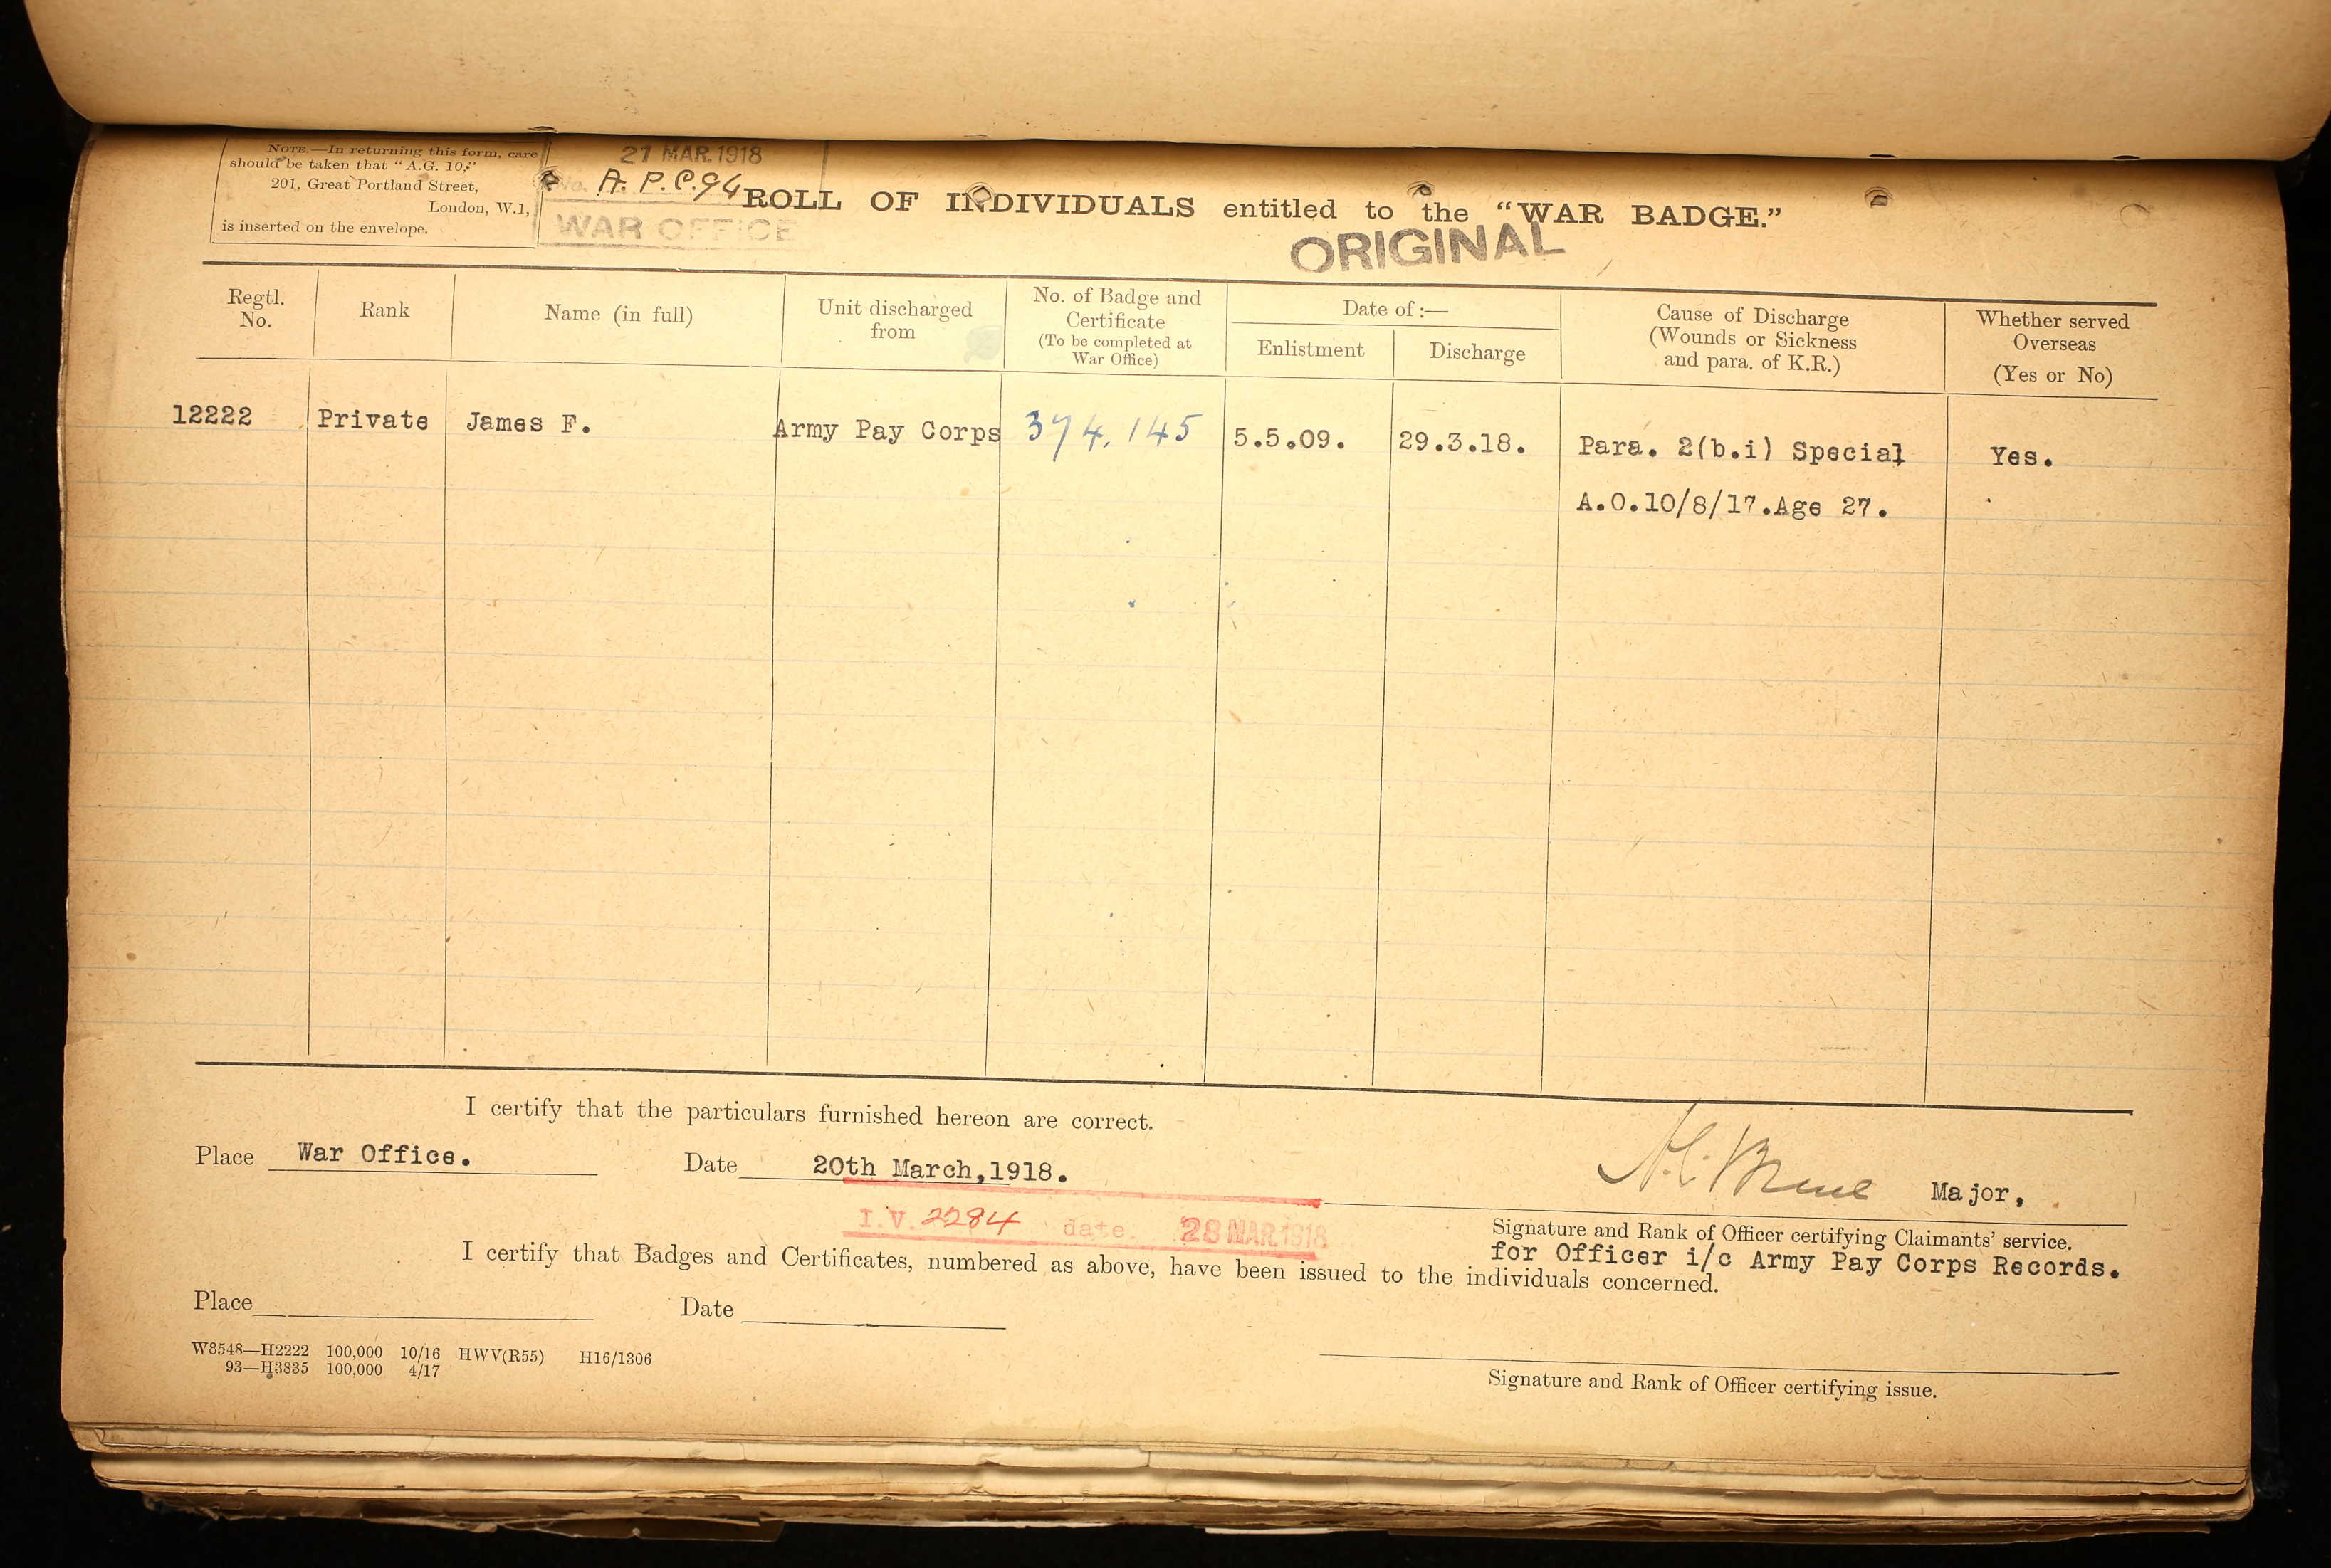 NOTE.—In returning this form, care
should be taken that "A.G. 10,"
201, Great Portland Street,
London, W.1,
is inserted on the envelope.
21 MAR. 1918
No. A. P. C. 94
WAR OFFICE
ROLL OF INDIVIDUALS entitled to the "WAR BADGE."
ORIGINAL
Regtl. No.
Rank
Name (in full)
Unit discharged from
No. of Badge and Certificate
(To be completed at War Office)
Date of :—
Enlistment
Discharge
Cause of Discharge
(Wounds or Sickness
and para. of K.R.)
Whether served
Overseas
(Yes or No)
12222 Private James F. Army Pay Corps 374,145 5.5.09. 29.3.18. Para. 2(b.i) Special Yes.
A.O.10/8/17.Age 27.
I certify that the particulars furnished hereon are correct.
Place War Office. Date 20th March,1918. Major,
Signature and Rank of Officer certifying Claimants' service.
for Officer i/c Army Pay Corps Records.
I.V. 2284 date. 28 MAR 1918
I certify that Badges and Certificates, numbered as above, have been issued to the individuals concerned.
Place Date
W8548—H2222 100,000 10/16 HWV(R55) H16/1306
93—H3835 100,000 4/17
Signature and Rank of Officer certifying issue.